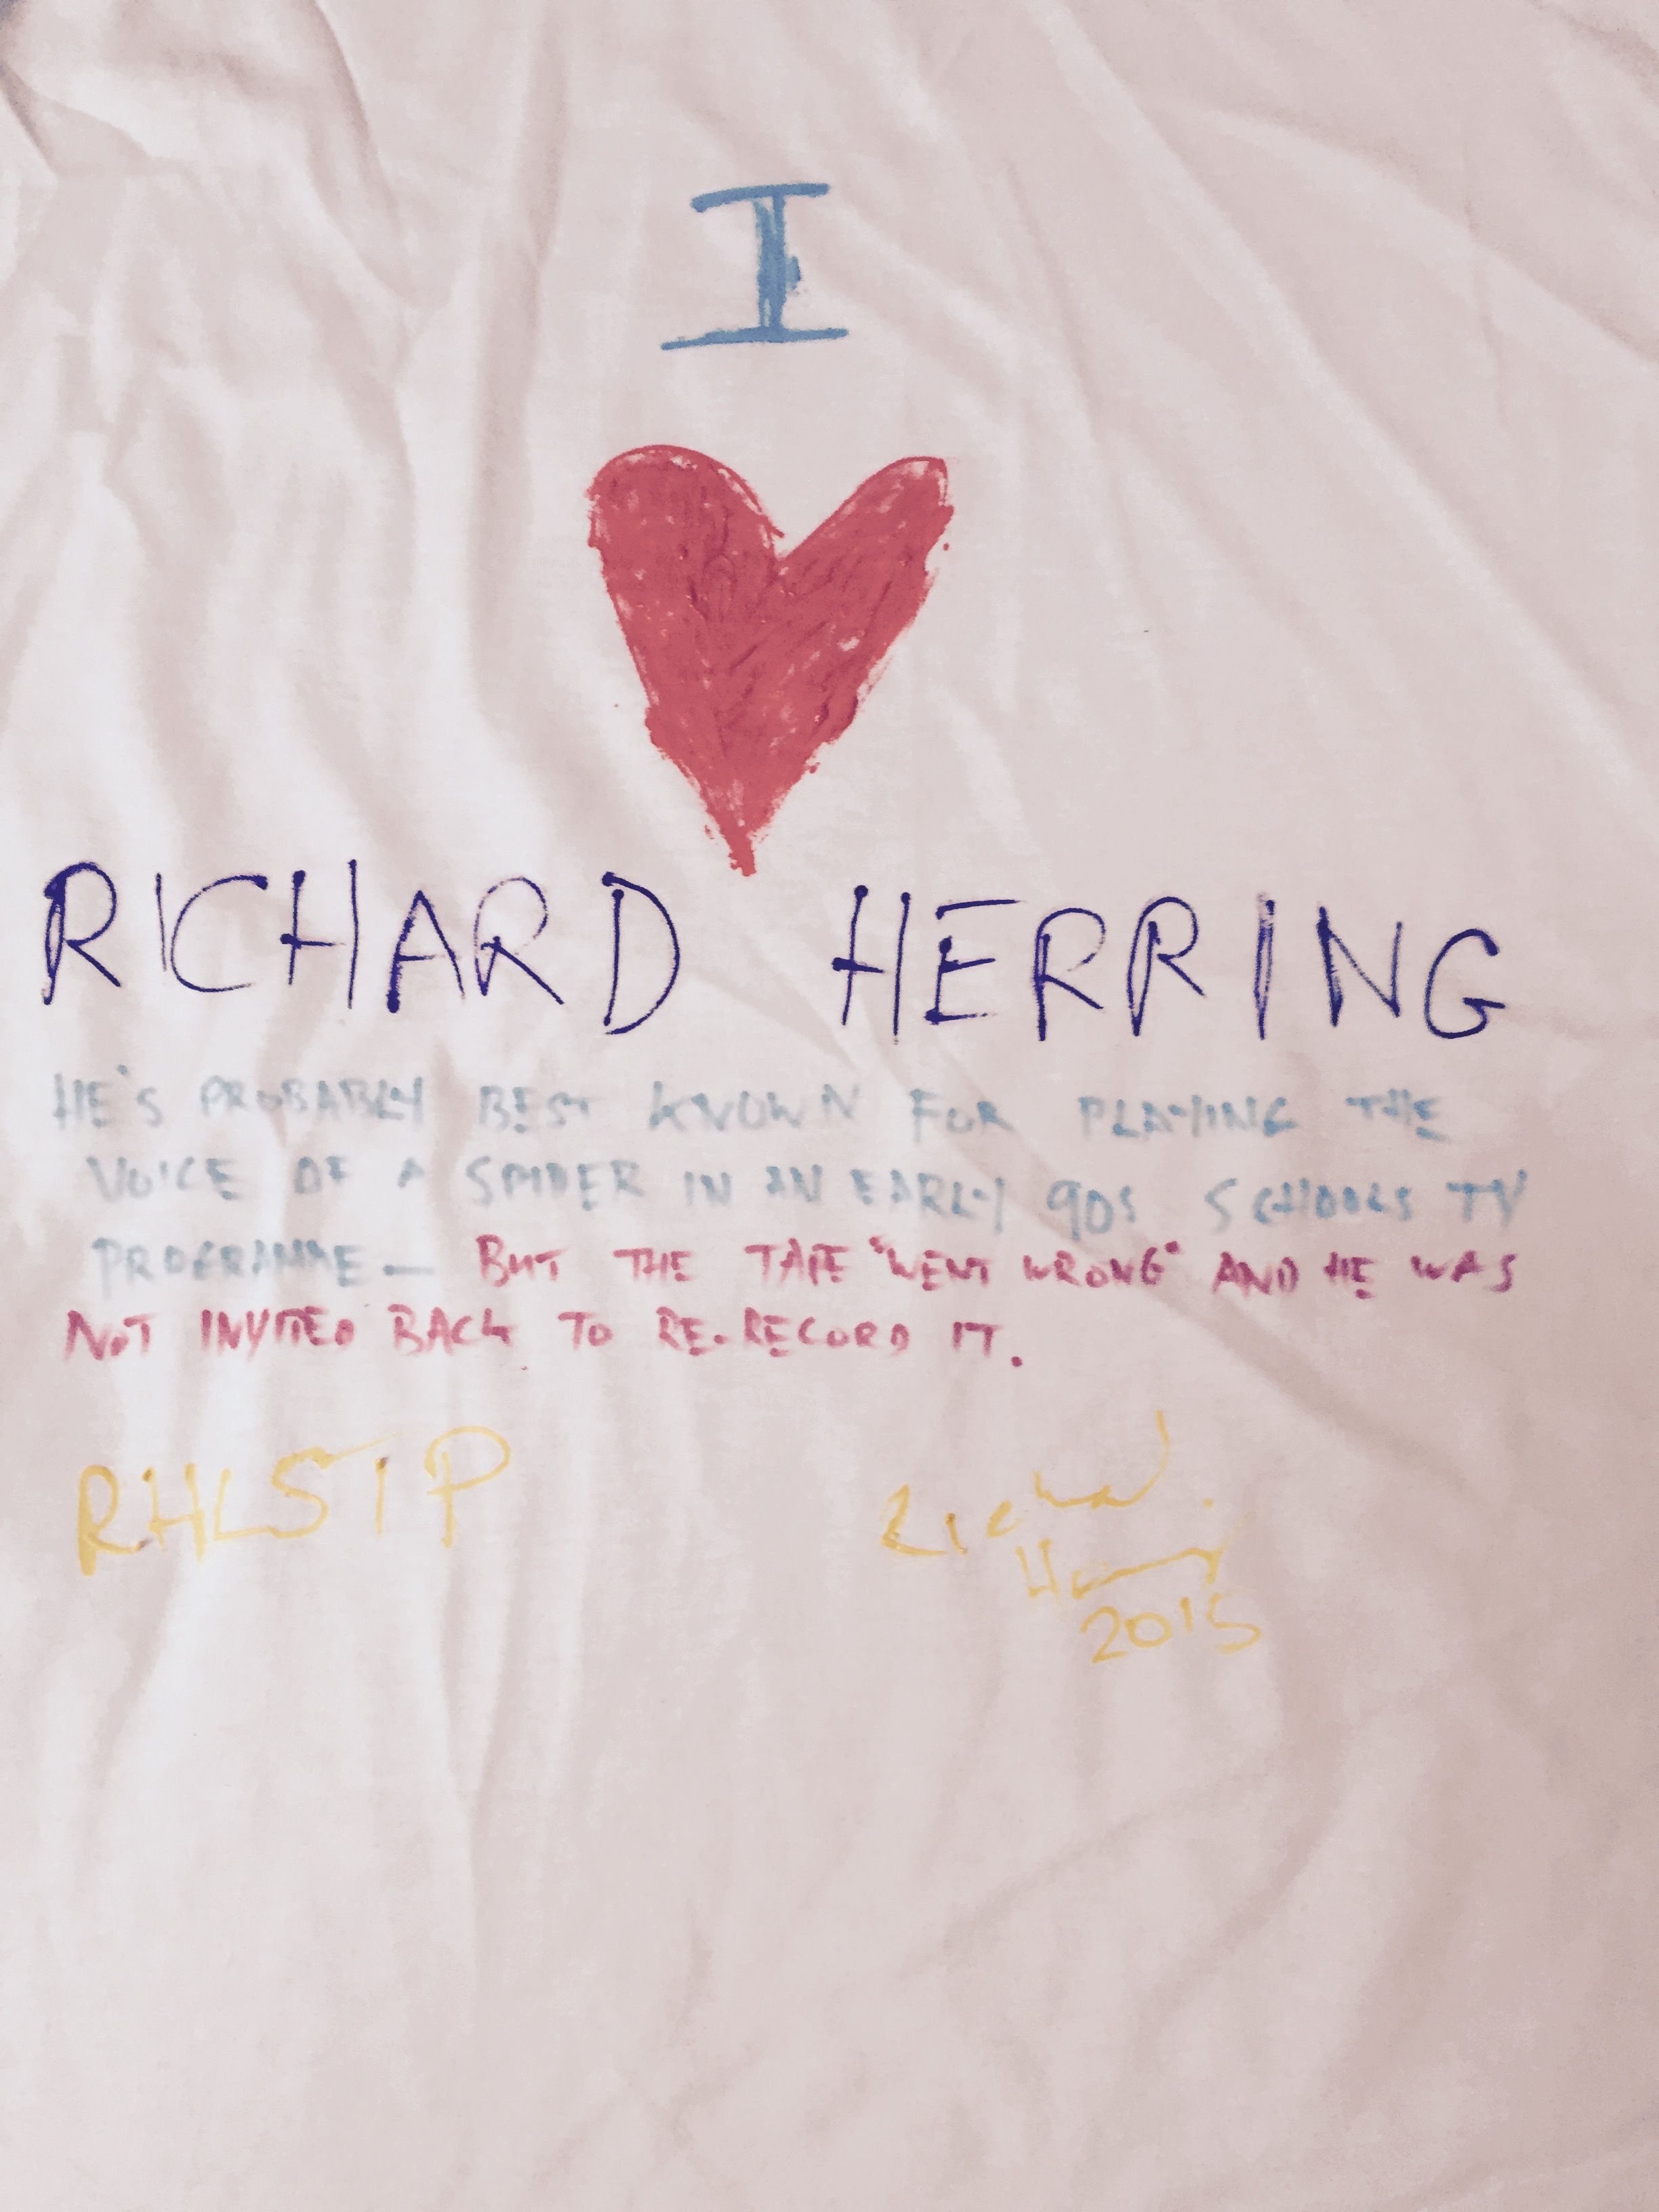 I
RICHARD HERRING
HE'S PROBABLY BEST KNOWN FOR PLAYING THE
VOICE OF A SPIDER IN AN EARLY 90s SCHOOLS TV
PROGRAMME — BUT THE TAPE "WENT WRONG" AND HE WAS
NOT INVITED BACK TO RE-RECORD IT.
RHLSTP
Richard
Herring
2015